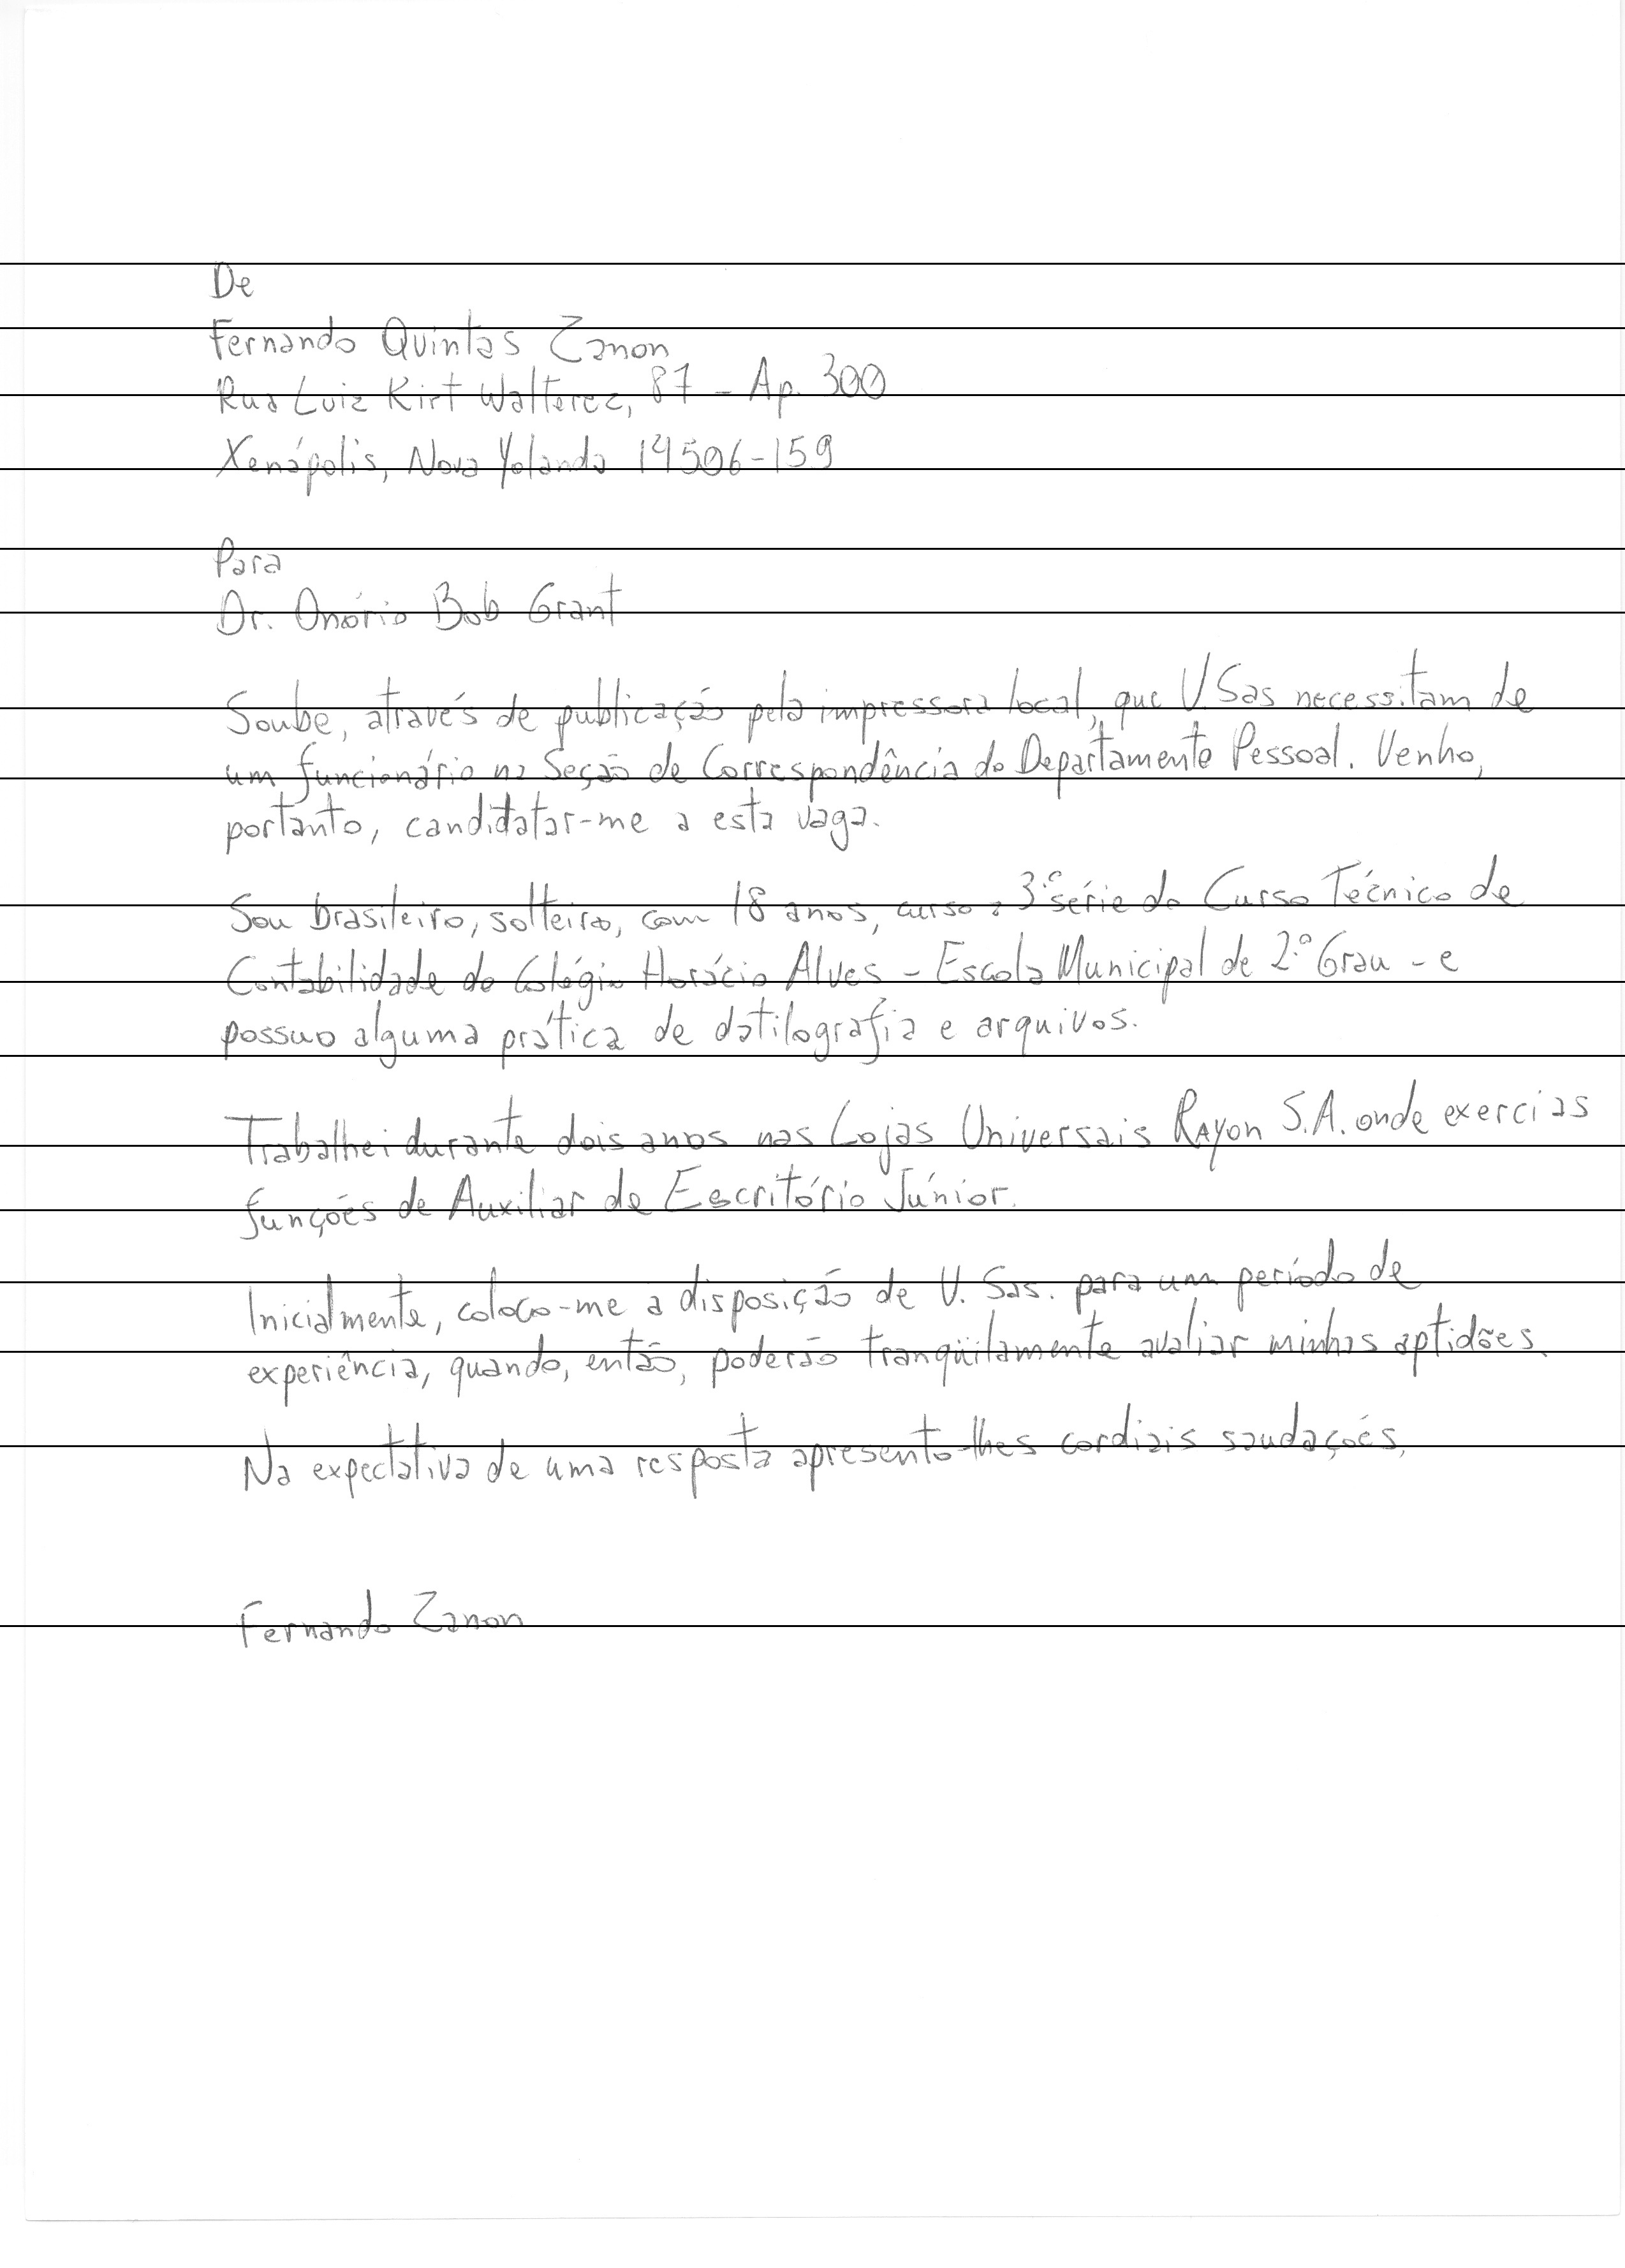 De
Fernando Quintas Zanon
Rua Luiz Kirt Walterez, 87 - Ap. 300
Xenápolis, Nova Yolanda 14506-159
Para
Dr. Onório Bob Grant
Soube, através de publicação pela impressora local, que V. Sas necessitam de
um funcionário na Seção de Correspondência do Departamento Pessoal. Venho,
portanto, candidatar-me a esta vaga.
Sou brasileiro, solteiro, com 18 anos, curso a 3ª série do Curso Técnico de
Contabilidade do Colégio Horácio Alves - Escola Municipal de 2º Grau - e
possuo alguma prática de datilografia e arquivos.
Trabalhei durante dois anos nas Lojas Universais Rayon S.A. onde exerci as
funções de Auxiliar de Escritório Júnior.
Inicialmente, coloco-me a disposição de V. Sas. para um período de
experiência, quando, então, poderão tranqüilamente avaliar minhas aptidões.
Na expectativa de uma resposta apresento-lhes cordiais saudações,
Fernando Zanon